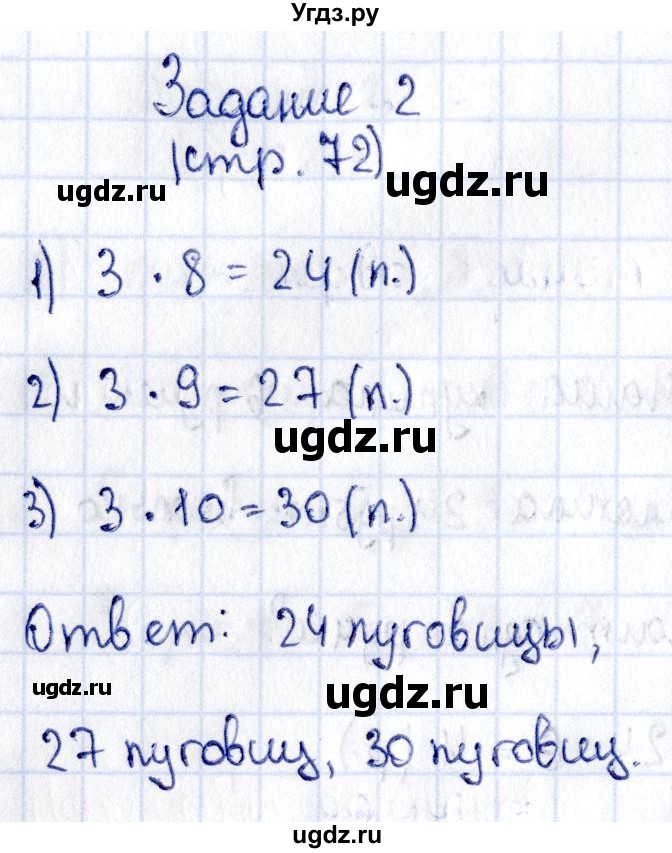 Угдз.ру
Задание 2
(стр. 72)
ugdz.ru
ugdz.ru
1) 3 · 8 = 24 (п.)
2) 3 · 9 = 27 (п.)
ugdz.ru
3) 3 · 10 = 30 (п.)
Ответ: 24 пуговицы,
ugdz.ru
ugdz.ru
27 пуговиц, 30 пуговиц.
ugdz.ru